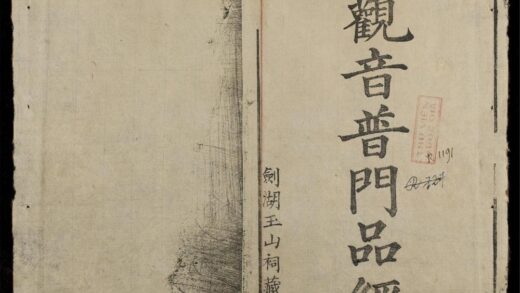 觀音普門品經
劍湖玉山祠藏
R. 1191